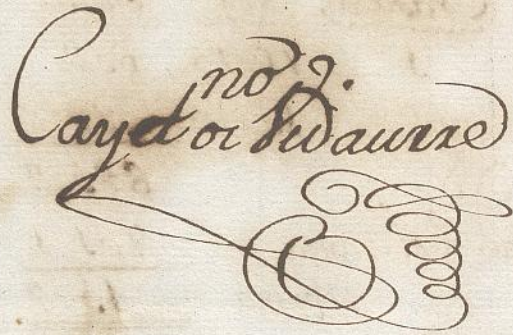 Cayetno Vidaurre